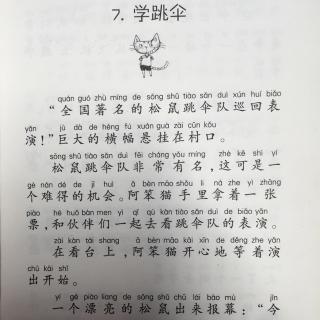 7. 学跳伞
quán guó zhù míng de sōng shǔ tiào sǎn duì xún huí biǎo
“全国著名的松鼠跳伞队巡回表
yǎn jù dà de héng fú xuán guà zài cūn kǒu
演!”巨大的横幅悬挂在村口。
sōng shǔ tiào sǎn duì fēi cháng yǒu míng zhè kě shì yí
松鼠跳伞队非常有名,这可是一
gè nán dé de jī huì ā bèn māo shǒu li ná zhe yì zhāng
个难得的机会。阿笨猫手里拿着一张
piào hé huǒ bàn men yì qǐ qù kàn tiào sǎn duì de biǎo yǎn
票,和伙伴们一起去看跳伞队的表演。
zài kàn tái shang ā bèn māo kāi xīn de děng zhe yǎn
在看台上,阿笨猫开心地等着演
chū kāi shǐ
出开始。
yí gè piào liang de sōng shǔ chū lái bào mù jīn
一个漂亮的松鼠出来报幕:“今